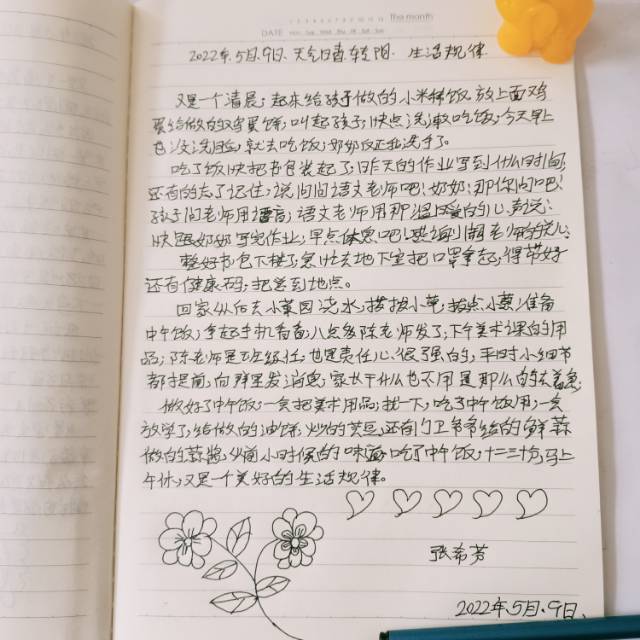 The month
DATE Mon Tue Wed Thu Fri Sat Sun
2022年.5月.9日. 天气日青.转阳. 生活规律
又是一个清晨；起床给孩子做的小米稀饭.放上面鸡
蛋给做的鸡蛋饼；叫起孩子；快点洗漱吃饭；今天早上
也没洗脸；就去吃饭；奶奶仅我洗手了。
吃了饭快把书包装起了；昨天的作业写到什么时间；
还有的忘了记住；说问问语文老师吧！奶奶；那你问吧！
孩子问老师用语言；语文老师用那温暖爱的心声说：
快跟奶奶写完作业；早点休息吧！
整好书包下楼了；急忙去地下室把口罩拿起；得带好
还有健康码；把送到地点。
回家从后去小菜园浇水；拔拔小草；拔点小葱；准备
中午饭；拿起手机看看；八点多陈老师发了；下午美术课的用
品；陈老师是班级任；也是责任心.很强的；平时小细节
都提前.向群里发消息；家长干什么也不用是那么的去着急；
做好了中午饭；一会把美术用品；找一下；吃了中午饭用；一会
放学了；给做的油饼；炒的芸豆；还有门卫爷爷给的鲜蒜
做的蒜酱；从前小时候的味道；吃了中午饭；十二三十分；马上
午休；又是一个美好的生活规律。
张希芳
2022年.5月.9日.